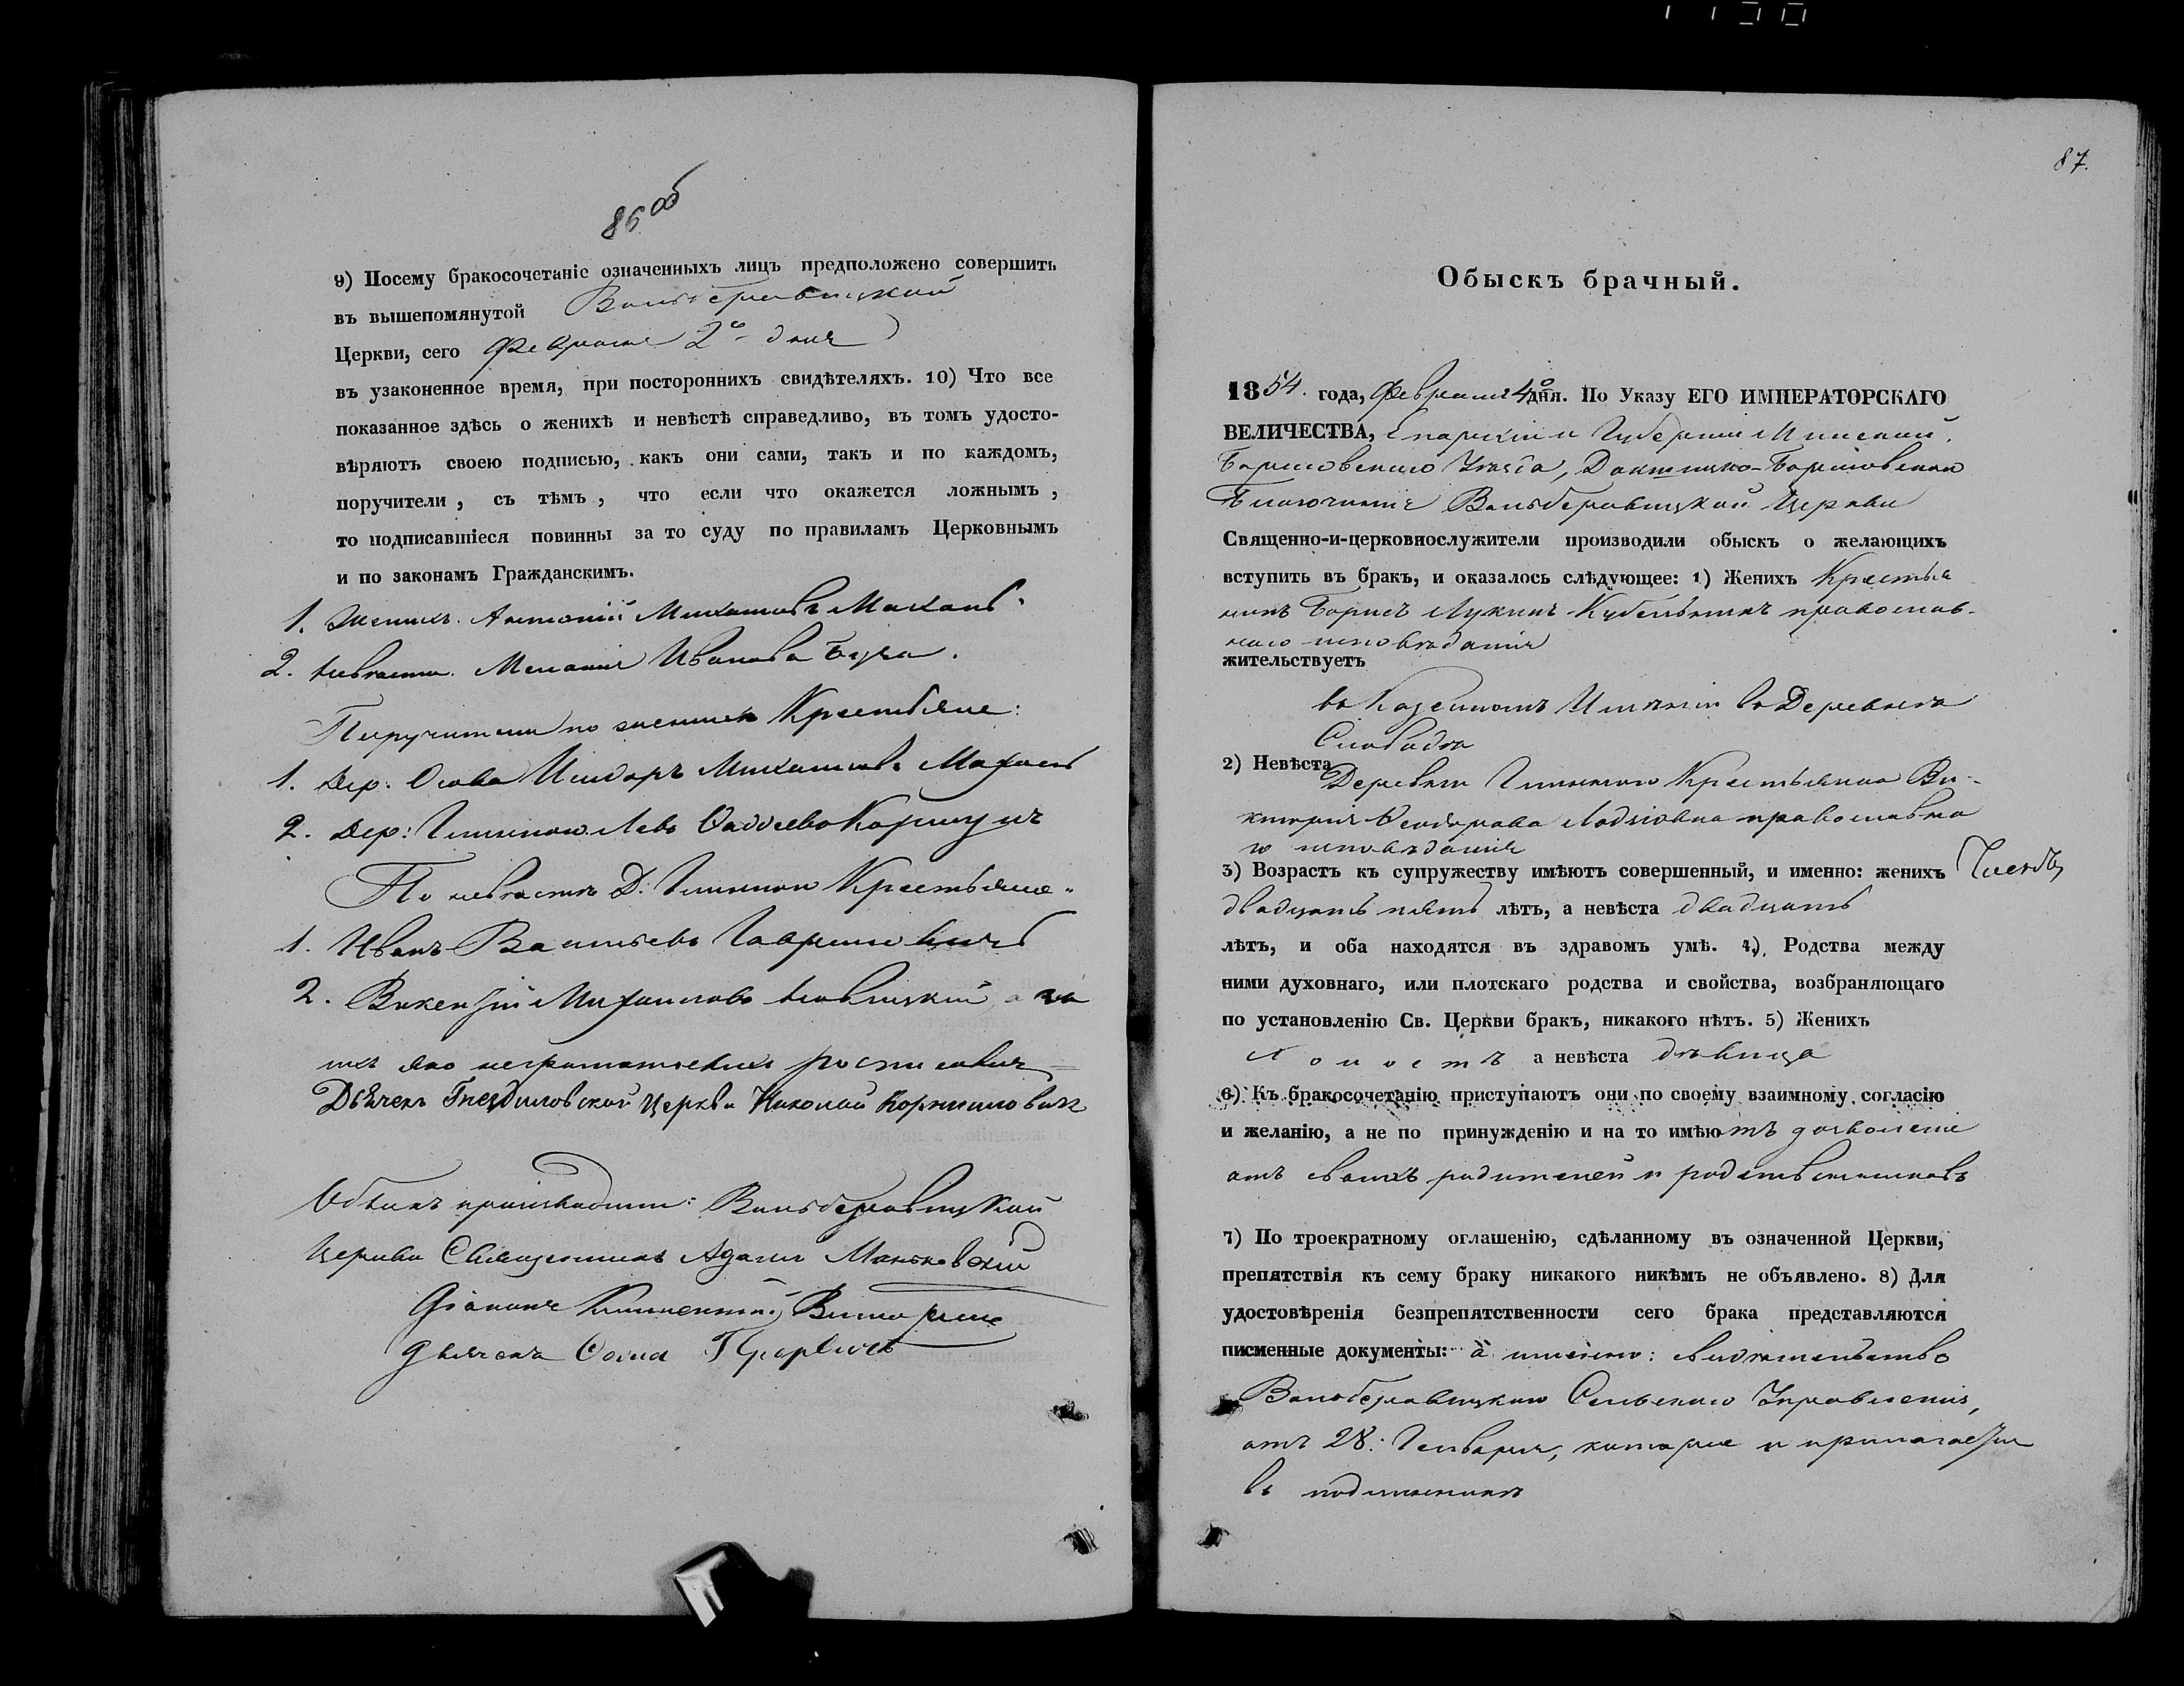 86 об
9) Посему бракосочетаніе означенныхъ лицъ предположено совершить
въ вышепомянутой
Церкви, сего Февраля 2го дня
въ узаконенное время, при постороннихъ свидѣтеляхъ. 10) Что все
показанное здѣсь о женихѣ и невѣстѣ справедливо, въ томъ удосто-
вѣряютъ своею подписью, какъ они сами, такъ и по каждомъ,
поручители, съ тѣмъ, что если что окажется ложнымъ,
то подписавшіеся повинны за то суду по правиламъ Церковнымъ
и по законамъ Гражданскимъ.
1. Женихъ. Антоній Михайловъ
2. Невѣста. Меланія Иванова
Поручители по женихѣ Крестьяне:
1. Дер. Осова Исидоръ Михайловъ
2. Дер: Левъ
По невѣстѣ Д. Крестьяне
1. Иванъ Васильевъ Гавриловичъ
2. Викентій Михайловъ Новицкій, а за
ихъ яко неграмотныхъ росписался
Дьячекъ Гнездиловской Церкви Николай Корниловичъ
Обыскъ производили:
Церкви Священникъ Адамъ Маньковскій
Діаконъ
Дьячекъ Ѳома
87.
Обыскъ брачный.
1854. года, Февраля 4го дня. По Указу ЕГО ИМПЕРАТОРСКАГО
ВЕЛИЧЕСТВА, Епархіи и Губерніи Минской,
Борисовскаго Уѣзда, Докшицко-Борисовскаго
Благочинія Церкви
Священно-и-церковнослужители производили обыскъ о желающихъ
вступить въ бракъ, и оказалось слѣдующее: 1) Женихъ Крестья
нинъ Борисъ Лукинъ православ-
наго исповѣданія
жительствуетъ
въ Казенномъ Имѣніи въ Деревнѣ
Слободка
2) Невѣста
Деревни Крестьянка Ви-
кторія Ѳеодорова православна
го исповѣданія
3) Возрастъ къ супружеству имѣютъ совершенный, и именно: женихъ
двадцать пять лѣтъ, а невѣста двадцать
лѣтъ, и оба находятся въ здравомъ умѣ. 4) Родства между
ними духовнаго, или плотскаго родства и свойства, возбраняющаго
по установленію Св. Церкви бракъ, никакого нѣтъ. 5) Женихъ
холостъ а невѣста дѣвица
6) Къ бракосочетанію приступаютъ они по своему взаимному согласію
и желанію, а не по принужденію и на то имѣютъ дозволеніе
отъ своихъ родителей и родственниковъ
7) По троекратному оглашенію, сдѣланному въ означенной Церкви,
препятствія къ сему браку никакого никѣмъ не объявлено. 8) Для
удостовѣренія безпрепятственности сего брака представляются
писменные документы: а именно: свидѣтельство
Сельскаго Управленія,
отъ 28. Генваря, которое и прилагается
въ подлинникѣ